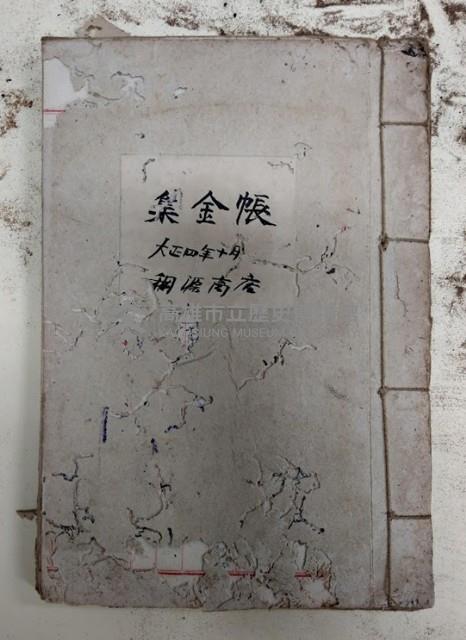 集金帳
大正四年十月
銅源商店
高雄市立歷史
KAOHSIUNG MUSEUM